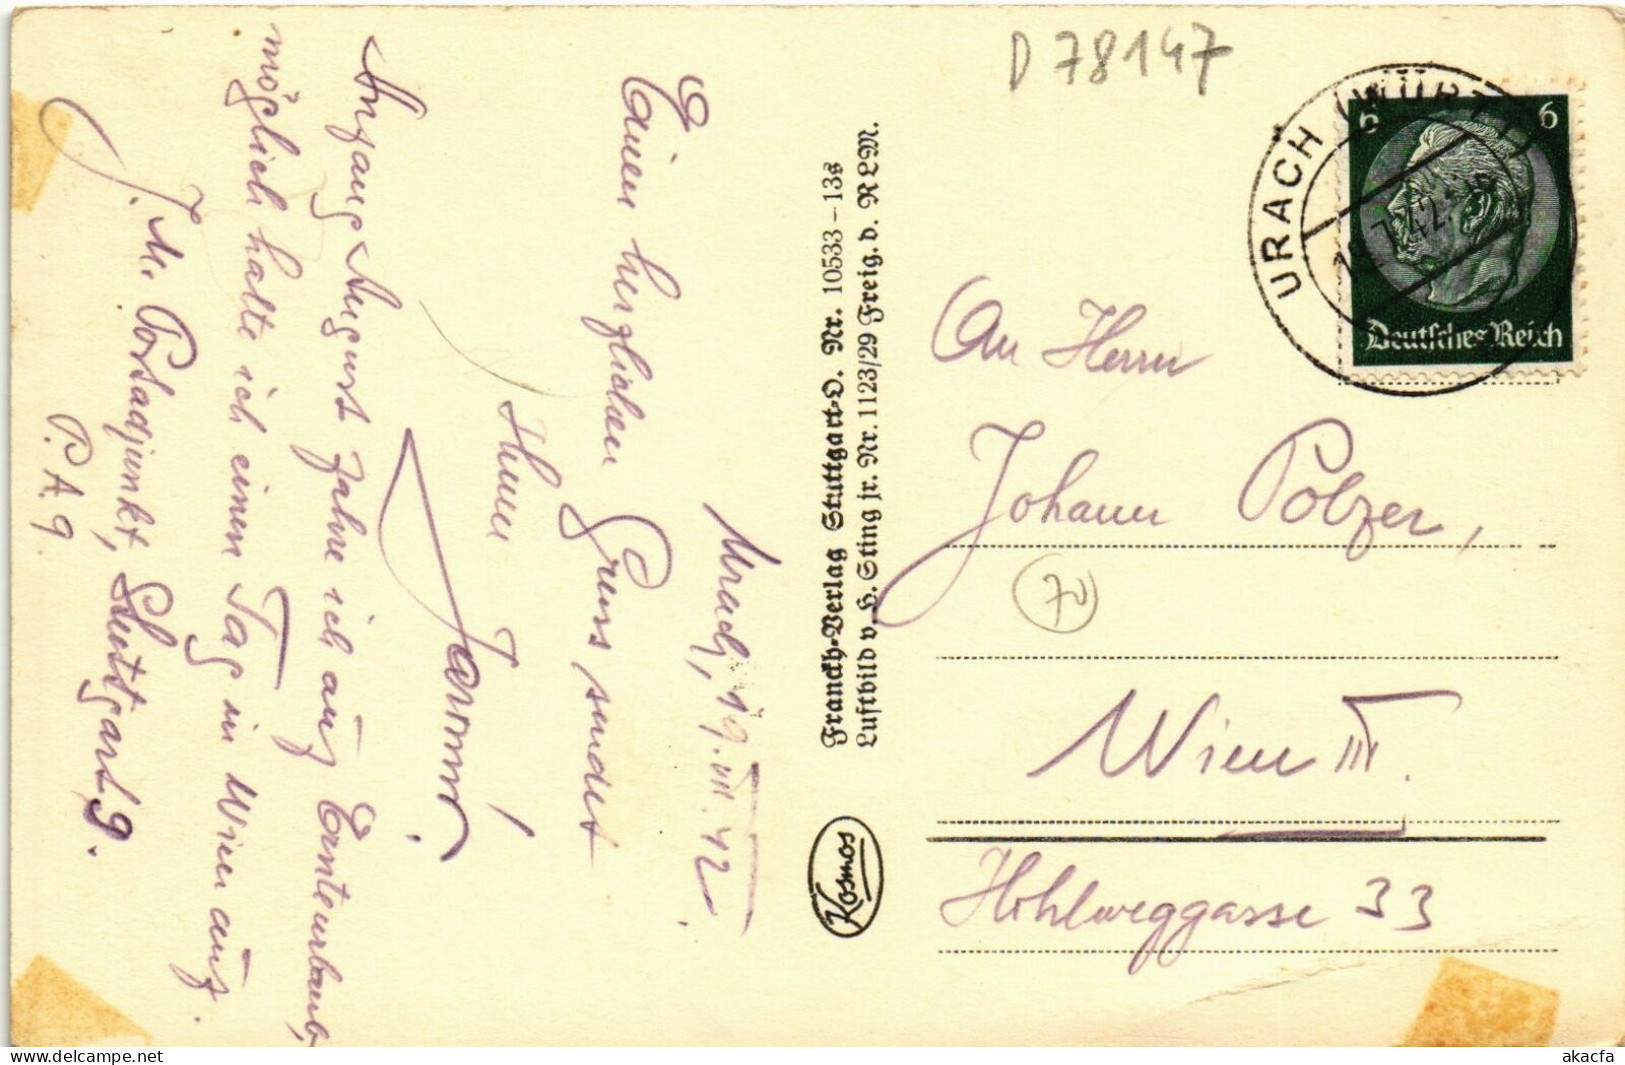 D 78147
URACH (WÜRTT)
6
6
Deutsches Reich
Urach, 19. VII. 42.
Einen herzlichen Gruss sendet
Ihnen
Anfang August fahre ich auf Ernteurlaub,
möglich halte ich einen Tag in Wien auf.
J. M. Postadjunkt, Stuttgart 9.
P. A. 9
Franckh-Verlag Stuttgart-O. Nr. 10533-13s
Luftbild v. H. Sting jr. Nr. 1123/29 Freig. d. RLM.
Kosmos
An Herrn
Johann Polzer,
70
Wien III.
Hohlweggasse 33
akacfa